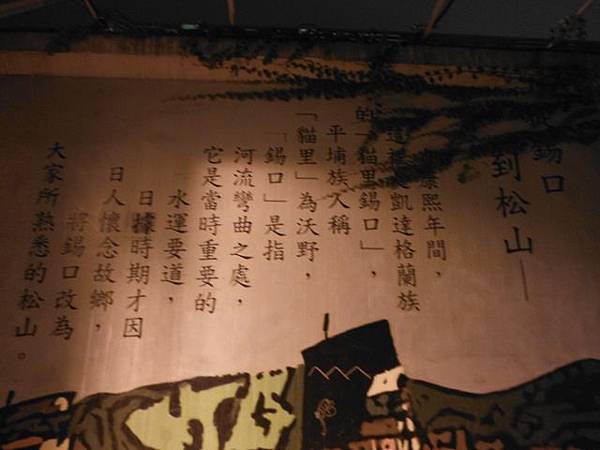 錫口
到松山—
康熙年間,
這裡是凱達格蘭族
的「貓里錫口」,
平埔族人稱
「貓里」為沃野,
「錫口」是指
河流彎曲之處,
它是當時重要的
水運要道,
日據時期才因
日人懷念故鄉,
將錫口改為
大家所熟悉的松山。